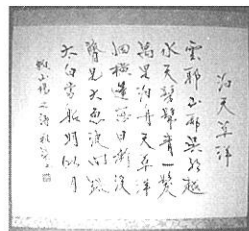 泊天草洋
雲耶山耶呉耶越
水天髣髴青一髪
萬里泊舟天草洋
烟横篷窓日漸没
瞥見大魚波間跳
太白當船明似月